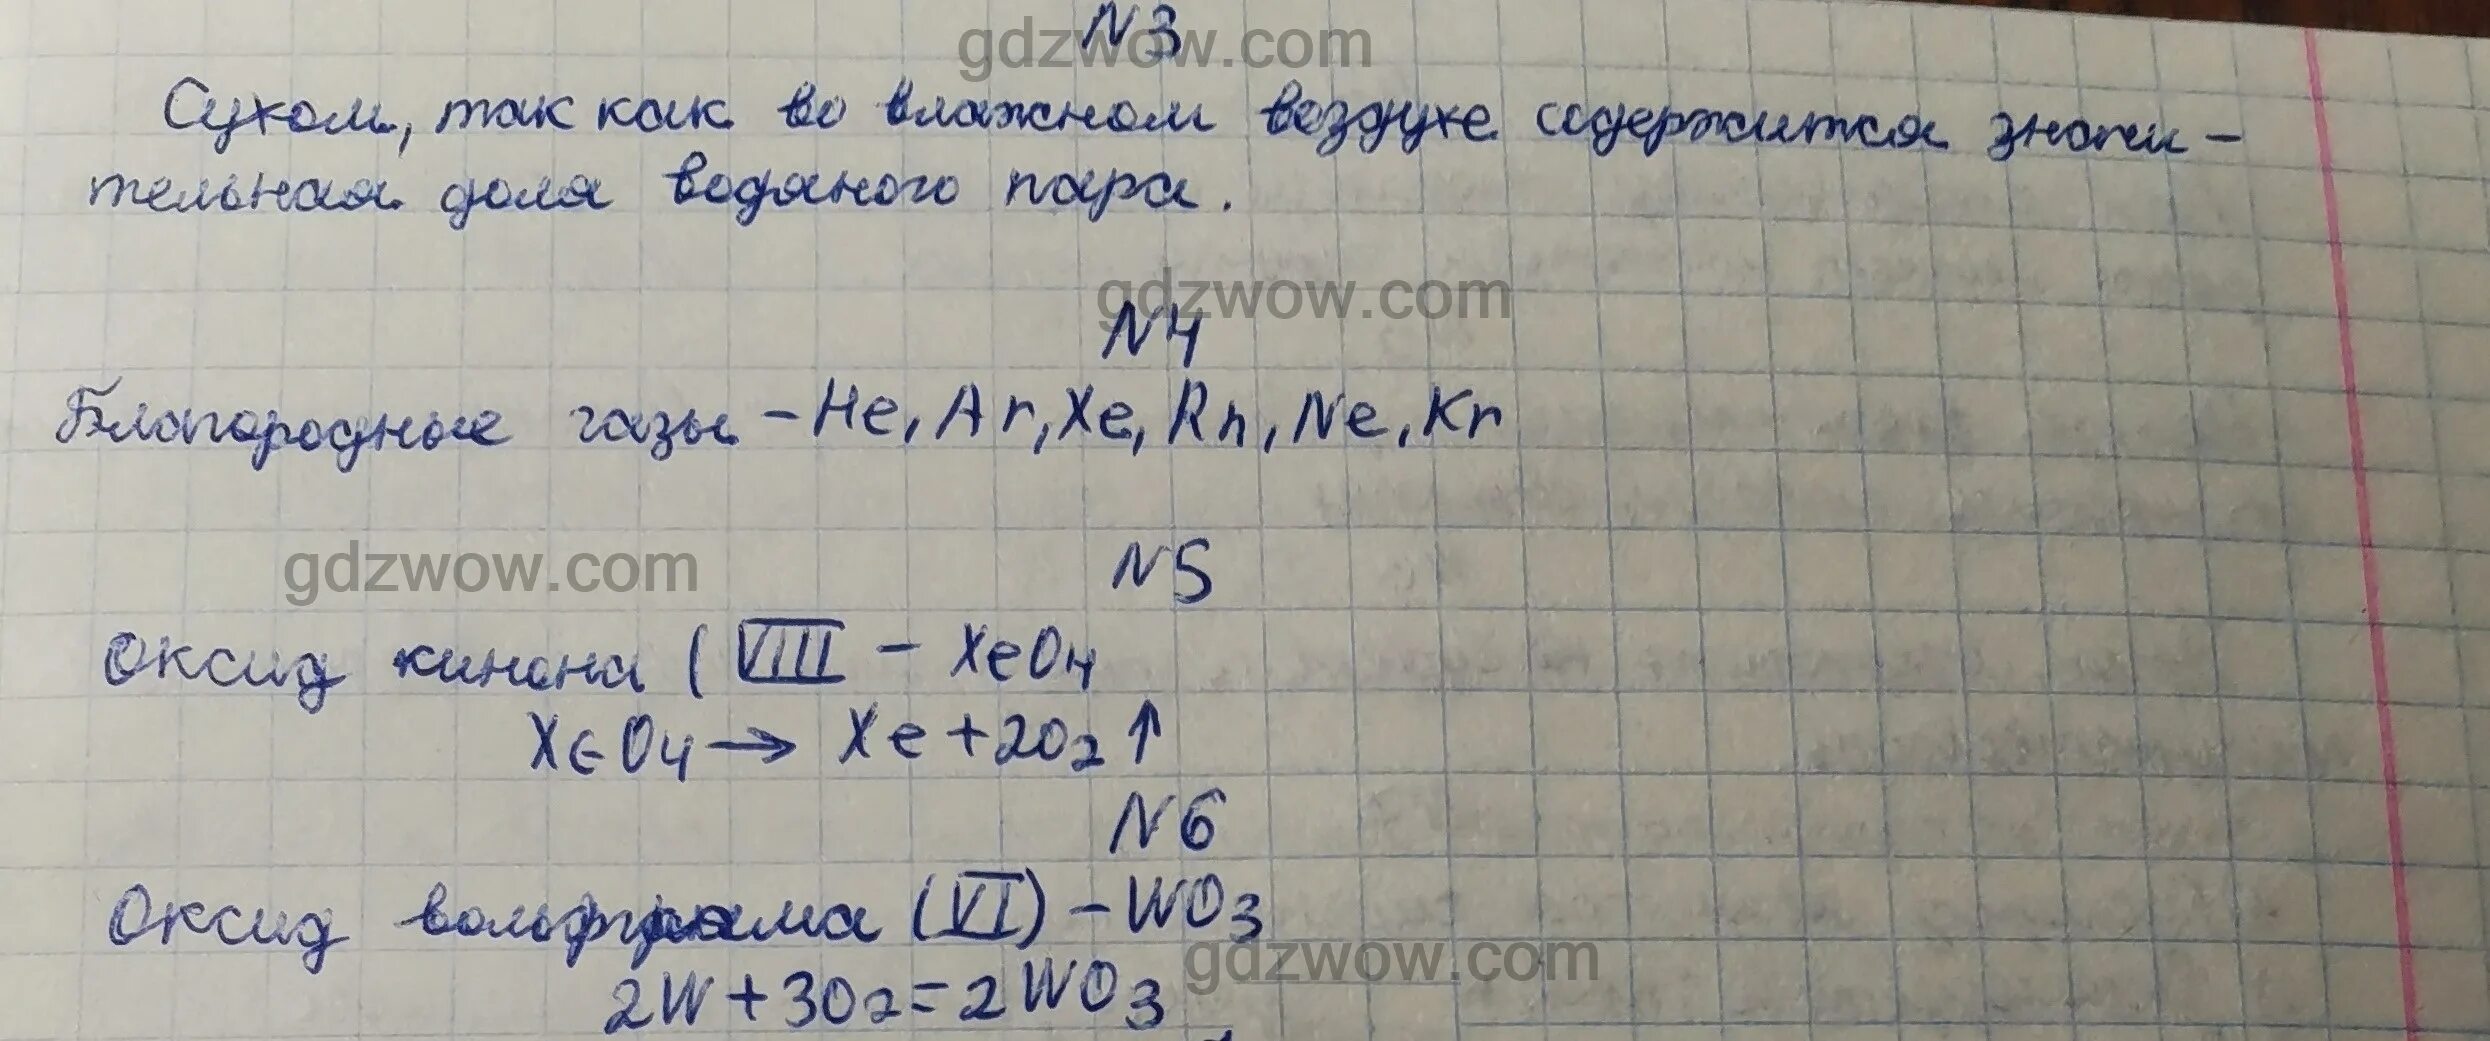 N3
gdzwow.com
Сухом, так как во влажном воздухе содержится значи-
тельная доля водяного пара.
gdzwow.com
N4
Благородные газы - He, Ar, Xe, Rn, Ne, Kr
gdzwow.com
N5
Оксид кинона (VIII - XeO4
XeO4 → Xe + 2O2 ↑
N6
Оксид вольфрама (VI) - WO3
gdzwow.com
2W + 3O2 = 2WO3